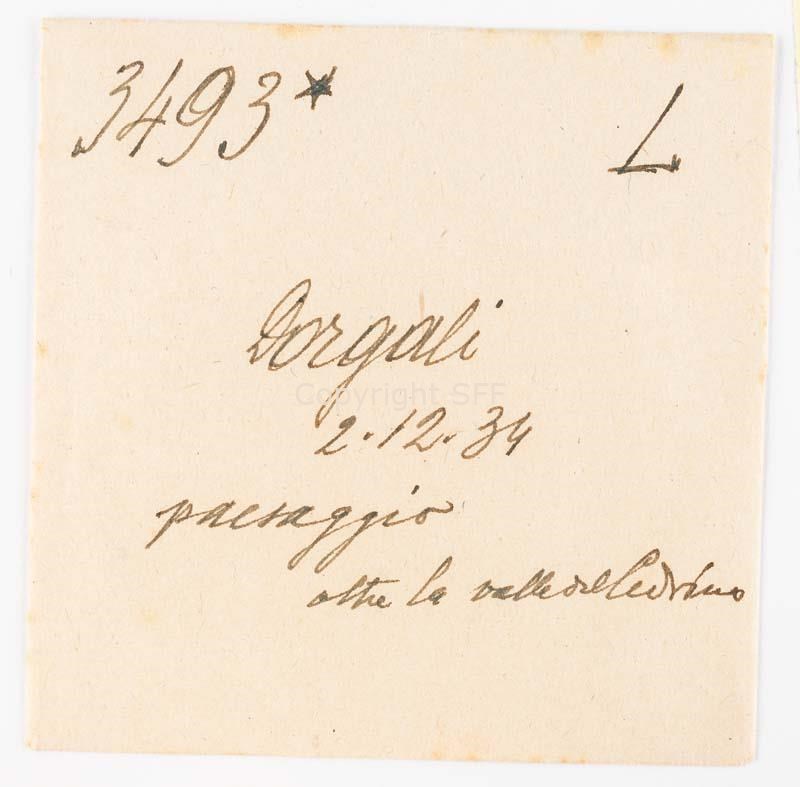 3493* L
Dorgali
Copyright SFF
2.12.34
paesaggio
oltre la valle del Cedrino